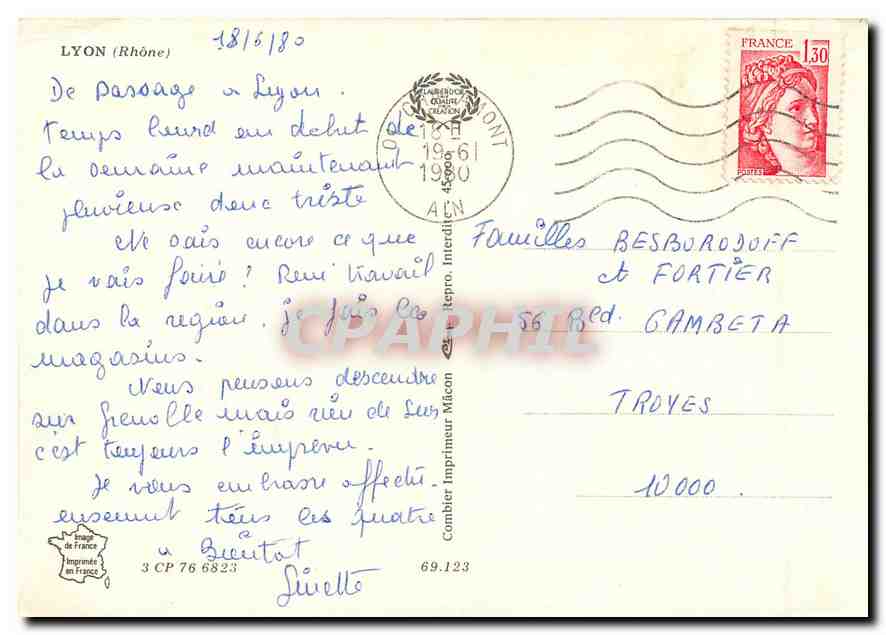 LYON (Rhône)
18/6/80
De passage a Lyon.
Temps lourd au debut de
la semaine maintenant
pluvieux donc triste
Ne sais encore ce que
je vais faire! René travail
dans la region. je fais les
magasins.
Nous pensons descendre
sur Grenoble mais rien de sur
c'est toujours l'imprevu.
Je vous embrasse affectu-
eusement tous les quatre
a Bientot
Ginette
Image
de France
Imprimée
en France
3 CP 76 6823
69.123
Combier Imprimeur Mâcon
Repro. Interdite
45.000
LAURIER D'OR
DE LA
QUALITE
CREATION
18 H
19-6
1980
AIN
FRANCE 1,30
POSTES
Familles BESBORODOFF
et FORTIER
56 Bled. GAMBETA
TROYES
10000.
CPAPHIL